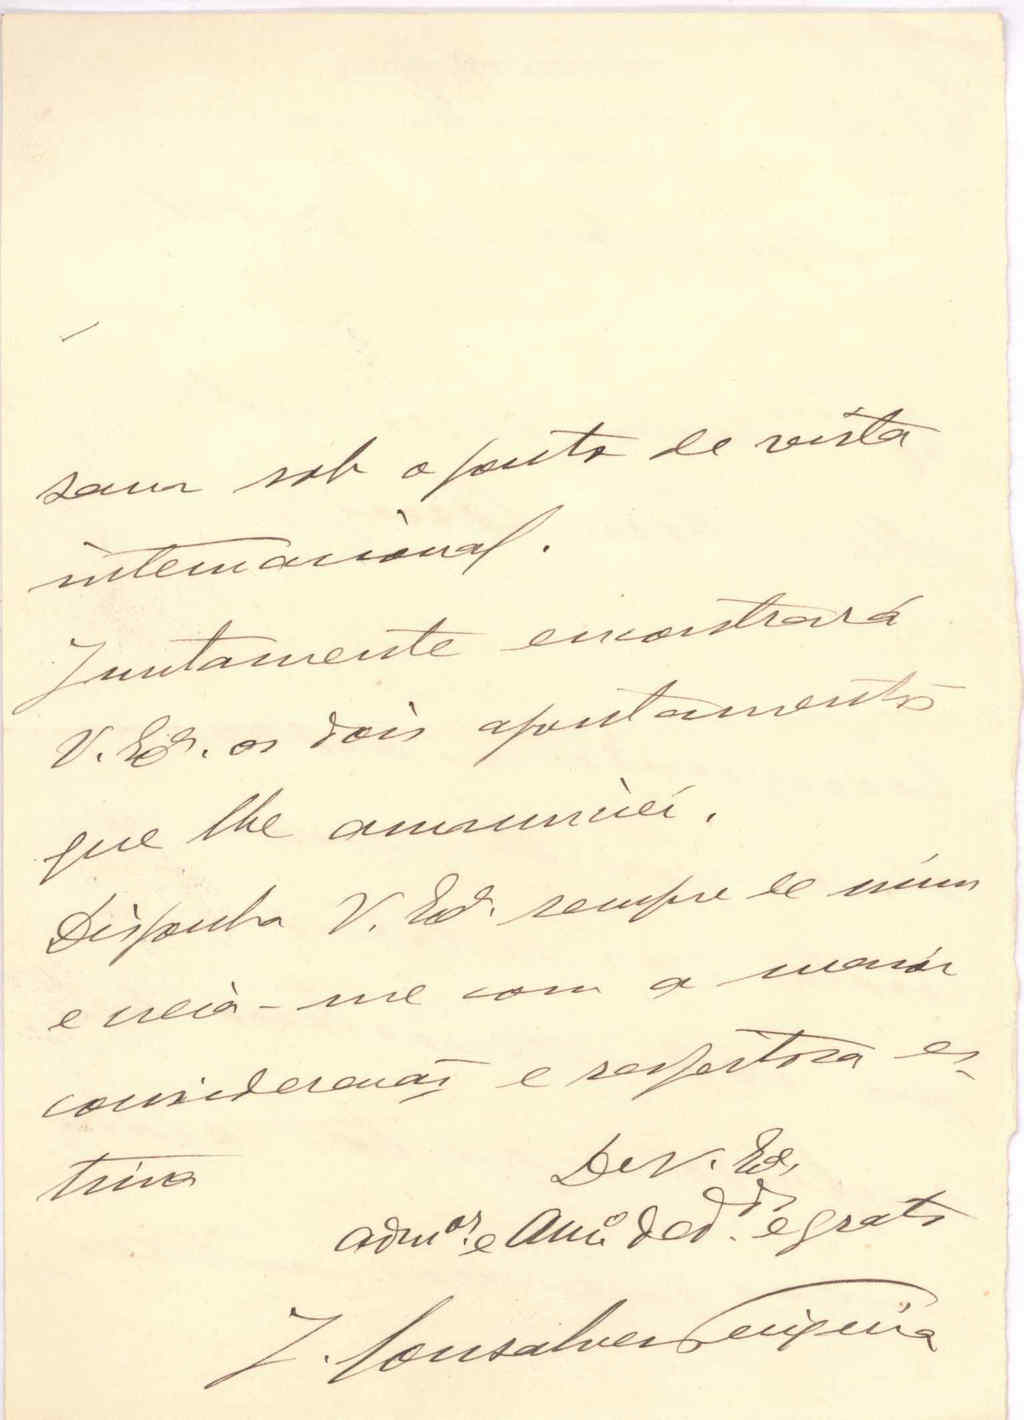 sam sob o ponto de vista
internacional.
Juntamente encontrará
V. Exª. os dois apontamentos
que lhe anunciei.
Disponha V. Exª. sempre de mim
e creia-me com a maior
consideração e respeitosa es-
tima
De V. Exª.
admor. e Amº. ded. e grato
J. Gonsalves Teixeira